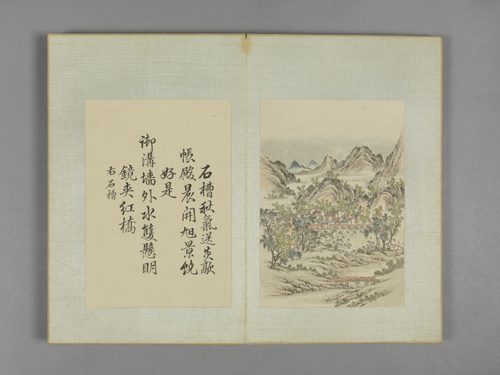 石槽秋氣送炎歊
帳殿晨開旭景饒
好是
御溝墻外水雙懸明
鏡夾紅橋
右石槽